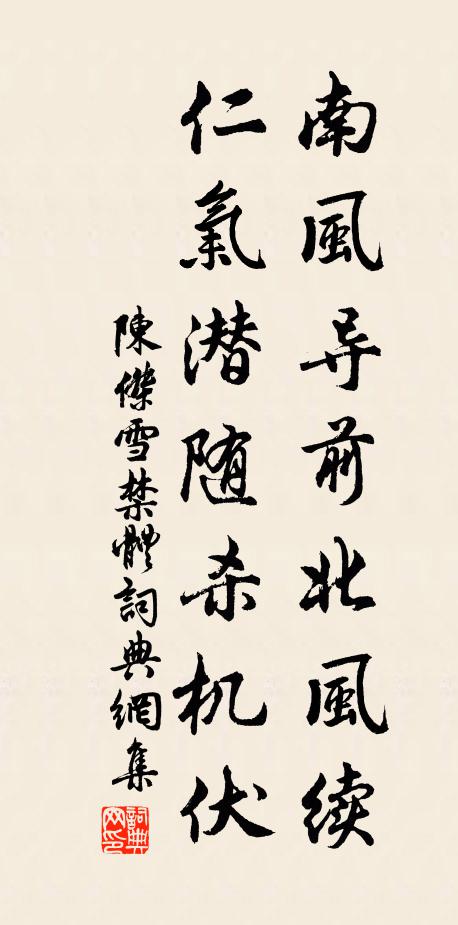 南風导前北風续
仁氣潜随杀机伏
陳傑雪禁體詞典網集
詞典网印